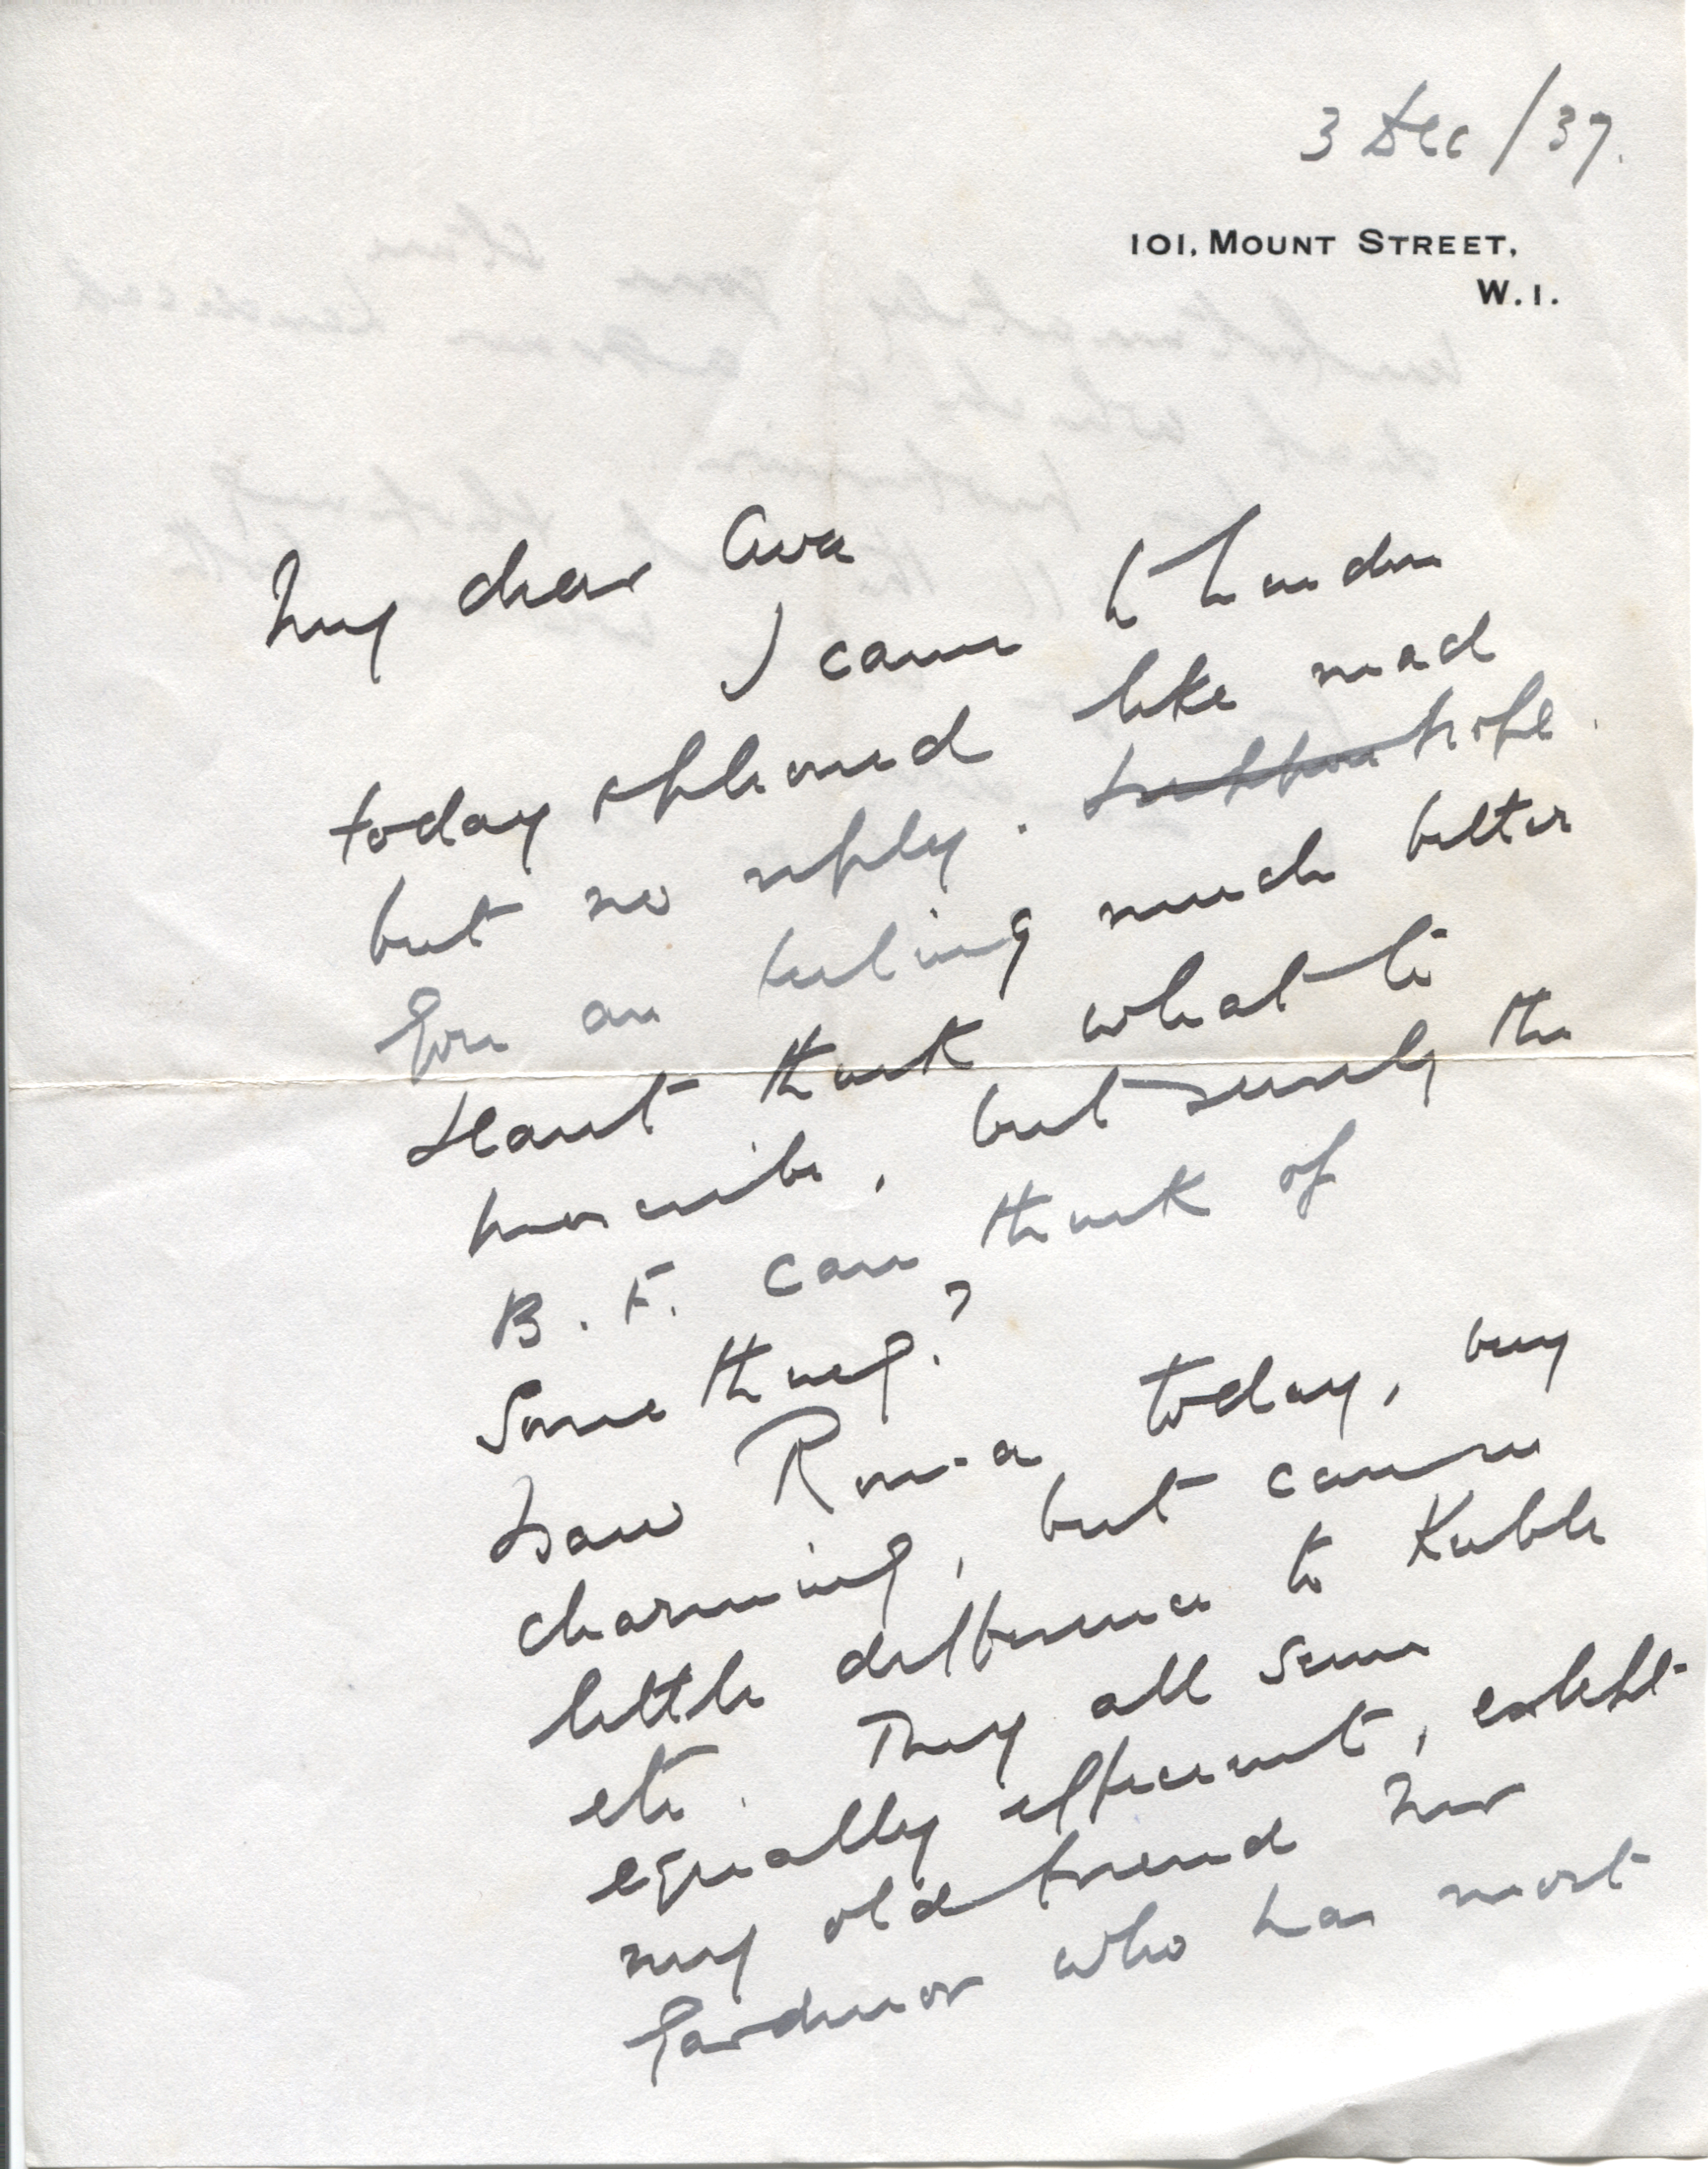 3 Dec/37.
101, MOUNT STREET,
W.1.
My dear Ava
I came to London
today & phoned like mad
but no reply. hope
you are feeling much better
Can't think what to
prescribe, but surely the
B. F. can think of
Something?
Saw Roma today, very
charming, but
little difference to Kubla
etc. They all seem
equally efficient, except
my old friend Mr
Gardner who has most